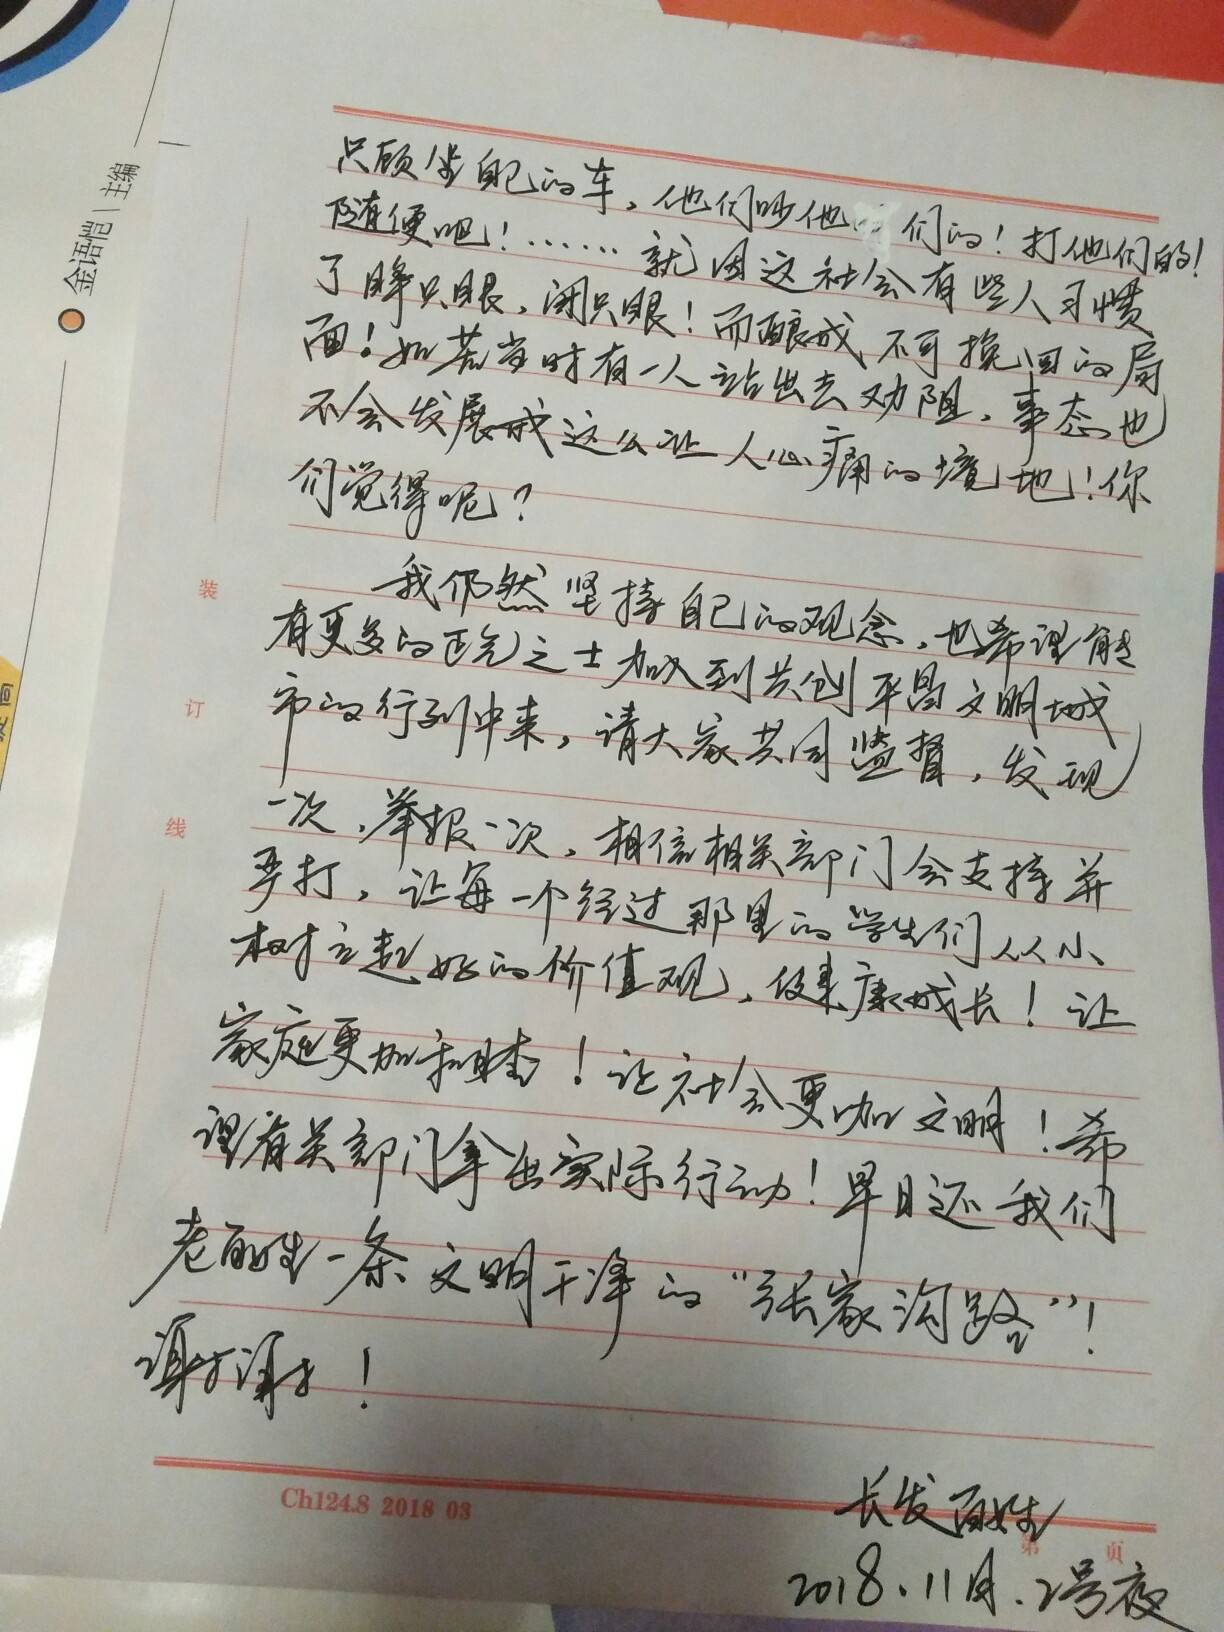 金语恺 | 主编
只顾坐自己的车，他们吵他们的！打他们的！
随便吧！……就因这社会有些人习惯
了睁只眼，闭只眼！而酿成不可挽回的局
面！如若当时有一人站出去劝阻，事态也
不会发展成这么让人心痛的境地！你
们觉得呢？
我仍然坚持自己的观念，也希望能
有更多的正气之士加入到共创平昌文明城
市的行列中来，请大家共同监督，发现
一次，举报一次，相信相关部门会支持并
严打，让每一个经过那里的学生们从小
树立起好的价值观，健康成长！让
家庭更加和睦！让社会更加文明！希
望有关部门拿出实际行动！早日还我们
老百姓一条文明干净的“张家沟路”！
谢谢！
长发百姓
2018.11月.2号夜
装
订
线
Ch124.8 2018 03
第 页